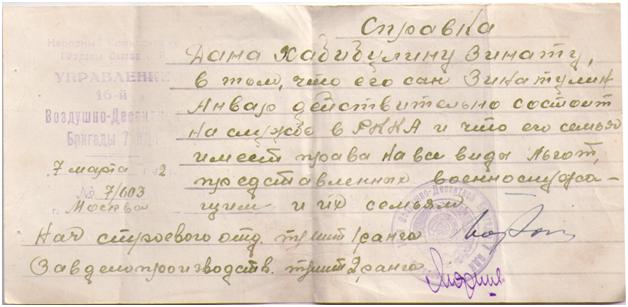 Справка
Народный Комиссариат
УПРАВЛЕНИЕ
16-й
Воздушно-Десантной
Бригады
7 марта 2
№ 7/603
г. Москва
Дана Хабибулину Зинату,
в том, что его сан Зикатулин
Анвар действительно состоит
на службе в РККА и что его семья
имеет права на все виды льгот,
представленных военнослужа-
щим и их семьям
Нач строевого отд. тринт 1 ранга
Завделопроизводств. тринт 2 ранга